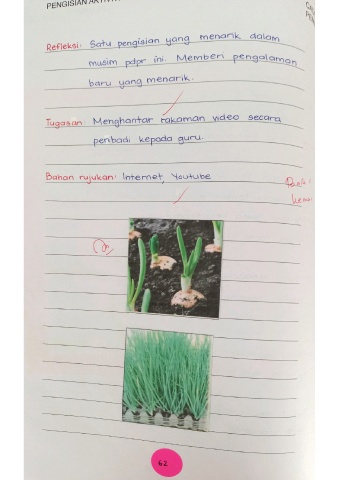 Refleksi: Satu pengisian yang menarik dalam
musim pdpr ini. Memberi pengalaman
baru yang menarik.
Tugasan: Menghantar rakaman video secara
peribadi kepada guru.
Bahan rujukan: Internet, Youtube
62